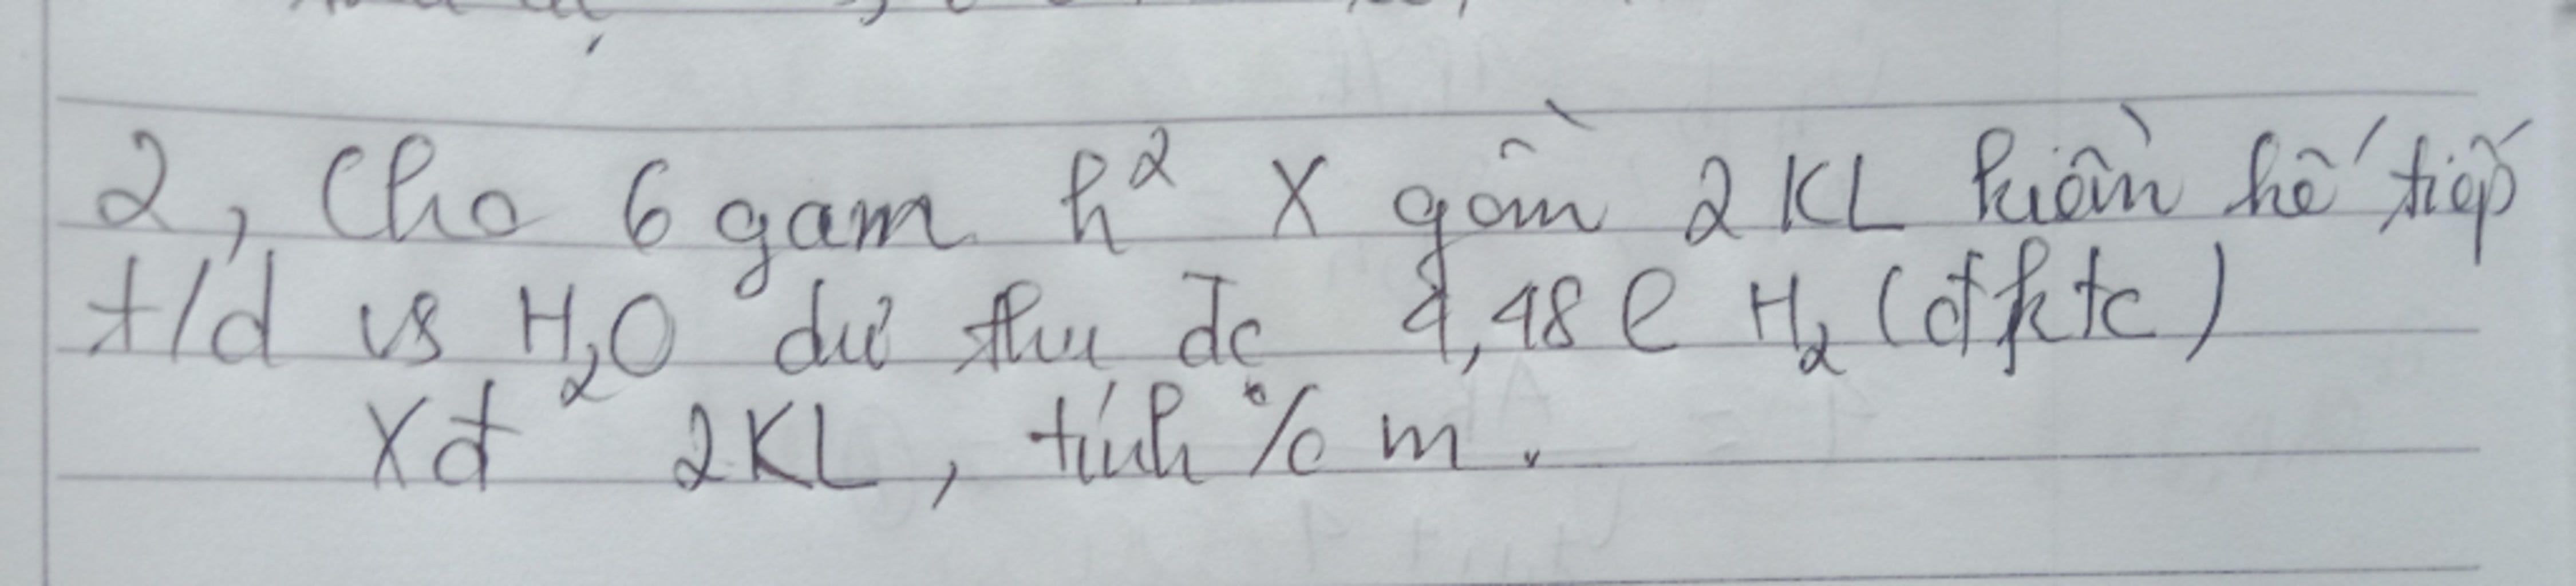 2, Cho 6 gam h² X gồm 2 KL kiềm kế tiếp
t/d vs H₂O dư thu đc 4,48 l H₂ (đktc)
Xđ 2KL, tính % m.